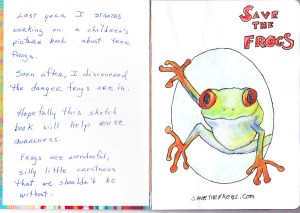 Last year I started
working on a children's
picture book about tree
frogs.
Soon after, I discovered
the danger frogs are in.
Hopefully this sketch
book will help raise
awareness.
Frogs are wonderful,
silly little creatures
that we shouldn't be
without.
SAVE
THE
FROGS
SAVETHEFROGS.COM